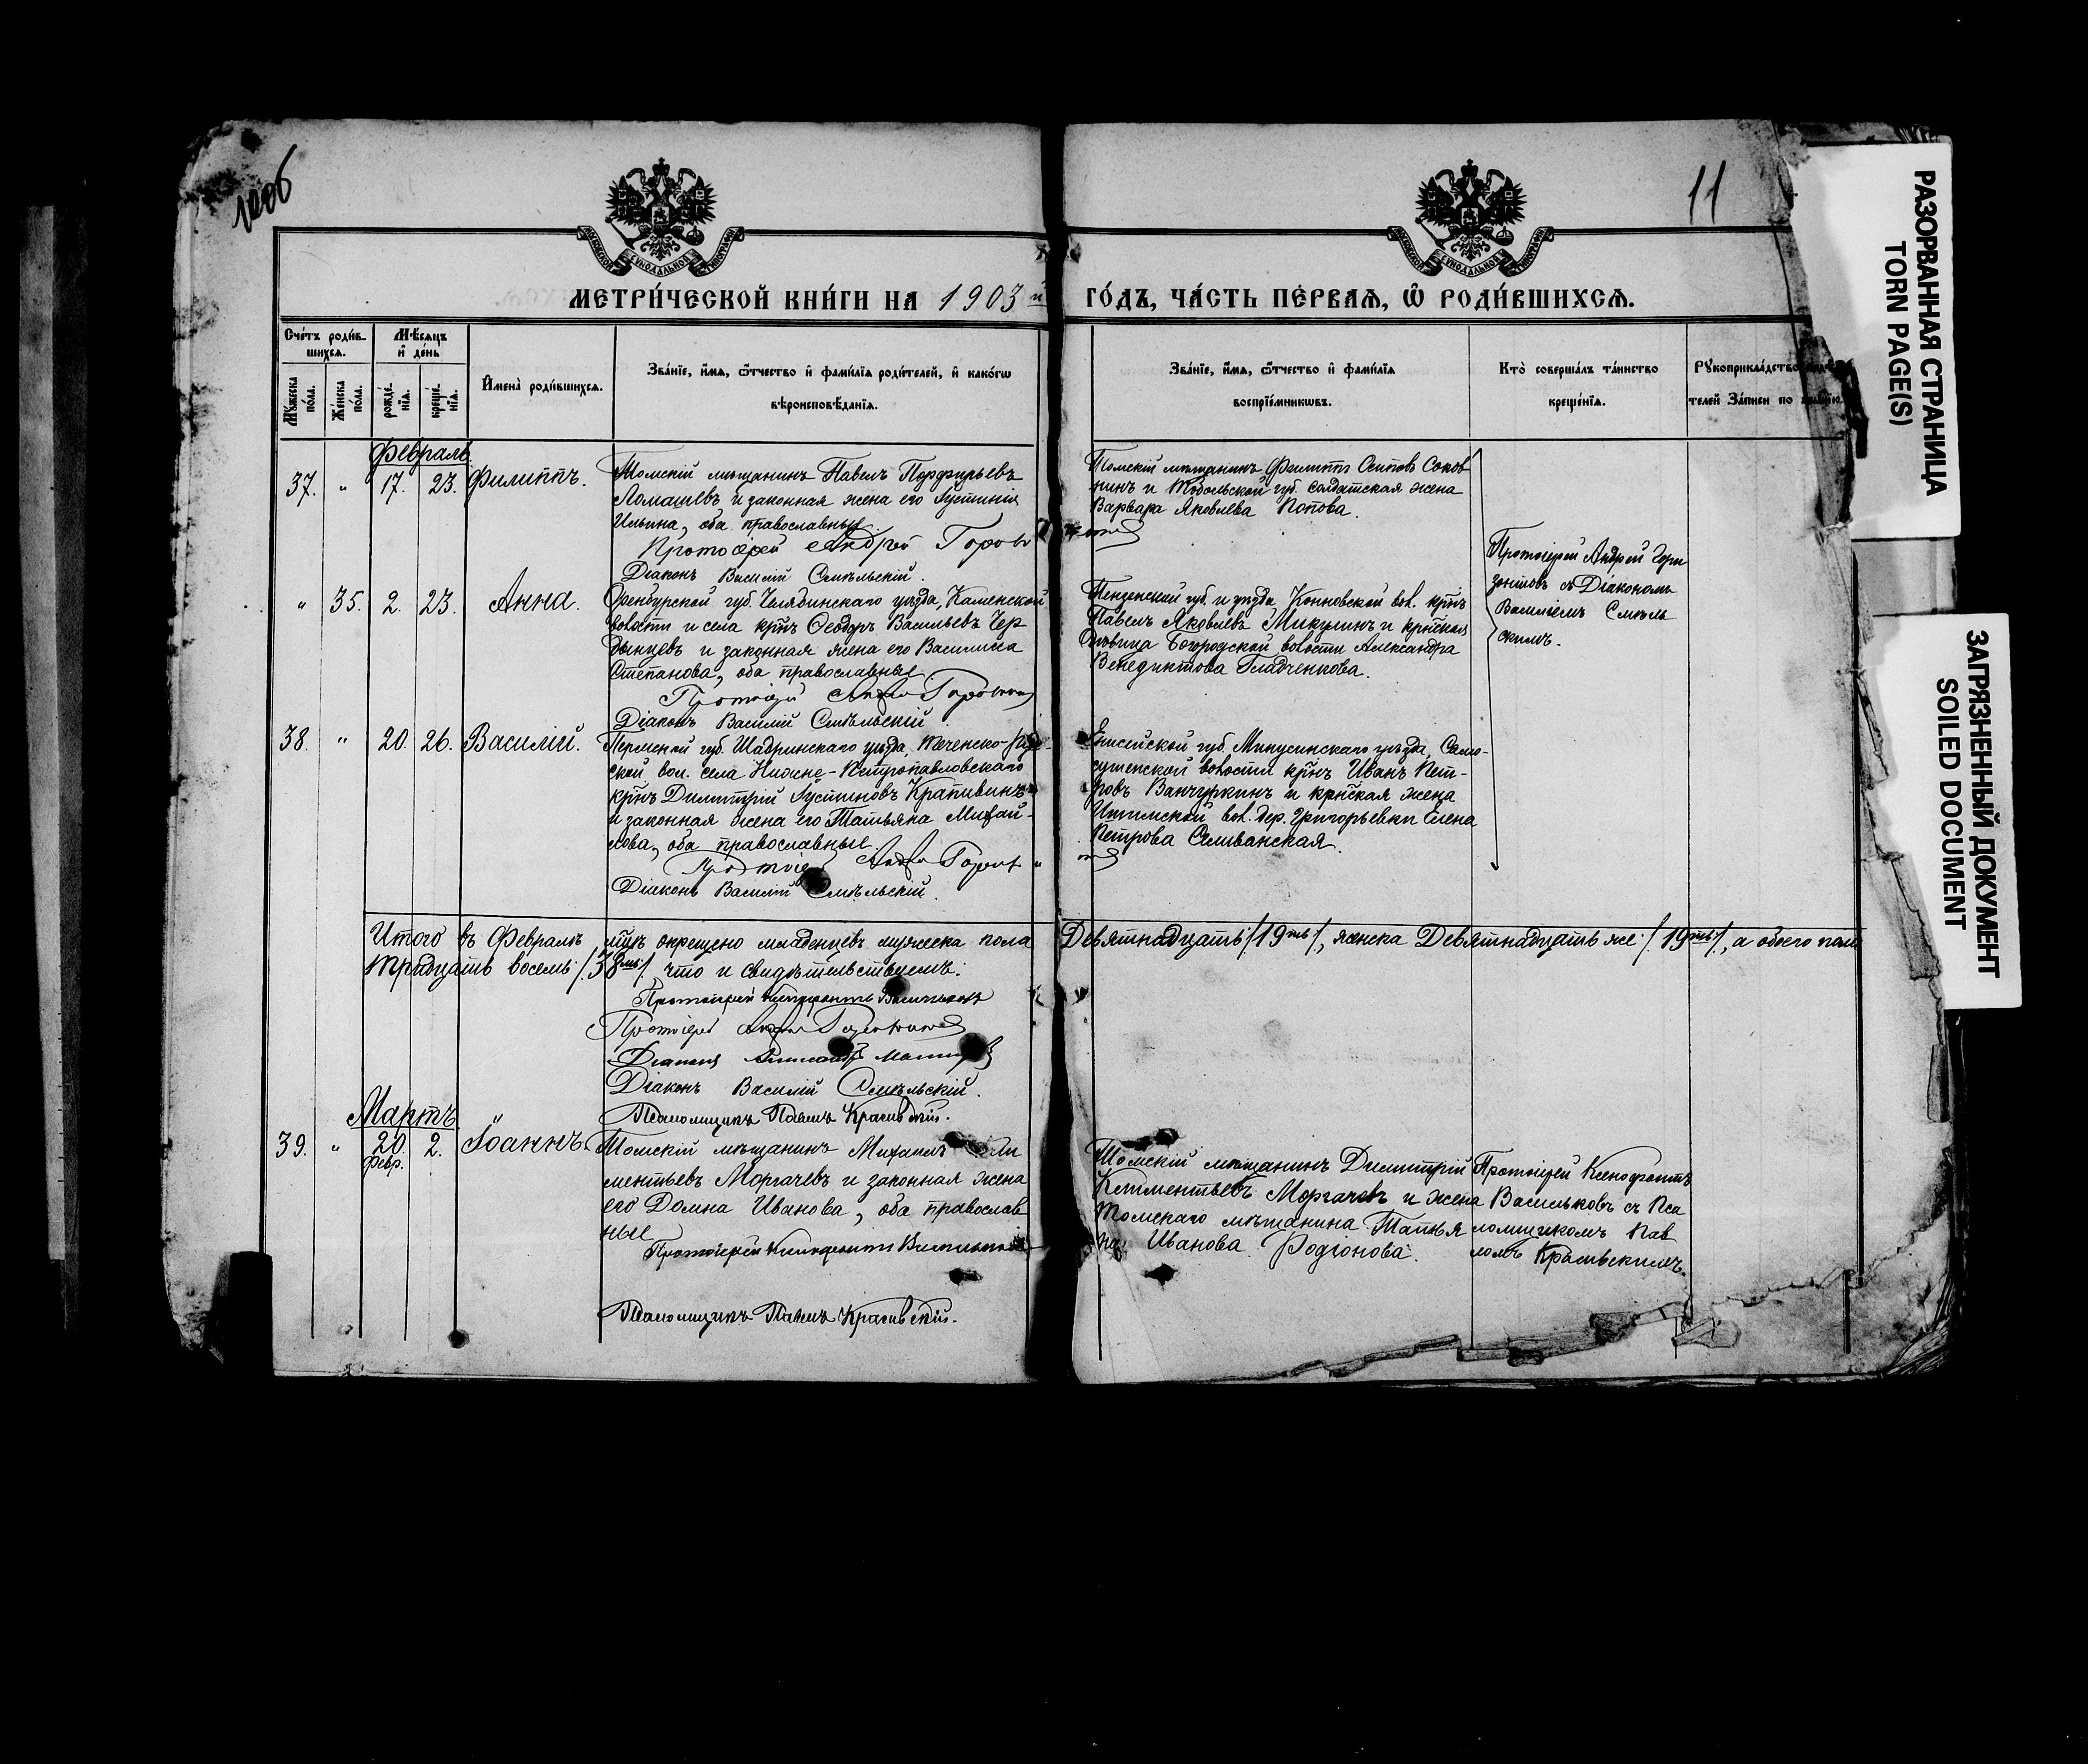 1906
11
МЕТРИ́ЧЕСКОЙ КНИ́ГИ НА 1903 й
ГО́ДЪ, ЧА́СТЬ ПЕ́РВАѦ, Ѡ҆ РОДИ́ВШИХСѦ.
Сче́тъ роди́в-
шихсѧ.
Мꙋ́жеска по́ла.
Же́нска по́ла.
Мѣ́сѧцъ и҆ де́нь
рожде́нїѧ.
креще́нїѧ.
И҆мена̀ роди́вшихсѧ.
Зва́нїе, и҆́мѧ, ѻ҆́тчество и҆ фами́лїѧ роди́телей, и҆ како́гѡ
вѣроисповѣ́данїѧ.
Зва́нїе, и҆́мѧ, ѻ҆́тчество и҆ фами́лїѧ
воспрїе́мникѡвъ.
Кто̀ соверша́лъ та́инство
креще́нїѧ.
Рꙋкоприкла́дство
телей за́писи по
Февраль
37. " 17. 23. Филиппъ.
Томскій мѣщанинъ Павелъ Порфирьевъ
Ломашевъ и законная жена его Іустинія
Ильина, оба православные.
Протоіерей Андрей
Діаконъ Василій Смѣльскій.
Томскій мѣщанинъ Филиппъ Осиповъ Соков
нинъ и Тобольской губ. солдатская жена
Варвара Яковлева Попова.
Протоіерей Андрей Гори
зонтовъ съ Діакономъ
Василіемъ Смѣль
скимъ.
" 35. 2. 23. Анна.
Оренбургской губ. Челябинскаго уѣзда, Каменской
волости и села крнъ Ѳеодоръ Васильевъ Чер
дынцевъ и законная жена его Василиса
Степанова, оба православные
Протоіерей
Діаконъ Василій Смѣльскій.
Пензенской губ. и уѣзда, Конновской вол. крнъ
Павелъ Яковлевъ Микулинъ и крнская
дѣвица Богородской волости Александра
Венедиктова Гладченкова.
38. " 20. 26. Василій.
Пермской губ. Шадринскаго уѣзда, Теченско-
ской вол. села Нижне-Петропавловскаго
крнъ Димитрій Іустиновъ Крапивинъ
и законная жена его Татьяна Михай-
лова, оба православные.
Діаконъ Василій Смѣльскій.
Енисейской губ. Минусинскаго уѣзда, Само-
волости крнъ Иванъ Пет-
ровъ Ванчуркинъ и крнская жена
Ишимской вол. дер. Григорьевки Елена
Петрова Селиванская.
Итого въ Февралѣ мцѣ окрещено младенцевъ мужеска пола Девятнадцать /.19ть/., женска Девятнадцать же /. 19ть/., а обоего пола
Тридцать восемь /.38мь/. что и свидѣтельствуемъ:
Протоіерей Ксенофонтъ Васильковъ
Протоіерей
Діаконъ
Діаконъ Василій Смѣльскій.
Псаломщикъ Павелъ Красивскій.
Мартъ
39. " 20. 2. Іоаннъ.
Февр.
Томскій мѣщанинъ Михаилъ
ментьевъ Моргачевъ и законная жена
его Домна Иванова, оба православ
ные
Протоіерей Ксенофонтъ Васильковъ
Псаломщикъ Павелъ Красивскій.
Томскій мѣщанинъ Димитрій
Климентьевъ Моргачевъ и жена
Томскаго мѣщанина Татья
на Иванова Родіонова.
Протоіерей Ксенофонтъ
Васильковъ съ Пса
ломщикомъ Пав
ломъ Красивскимъ.
РАЗОРВАННАЯ СТРАНИЦА
TORN PAGE(S)
ЗАГРЯЗНЕННЫЙ ДОКУМЕНТ
SOILED DOCUMENT